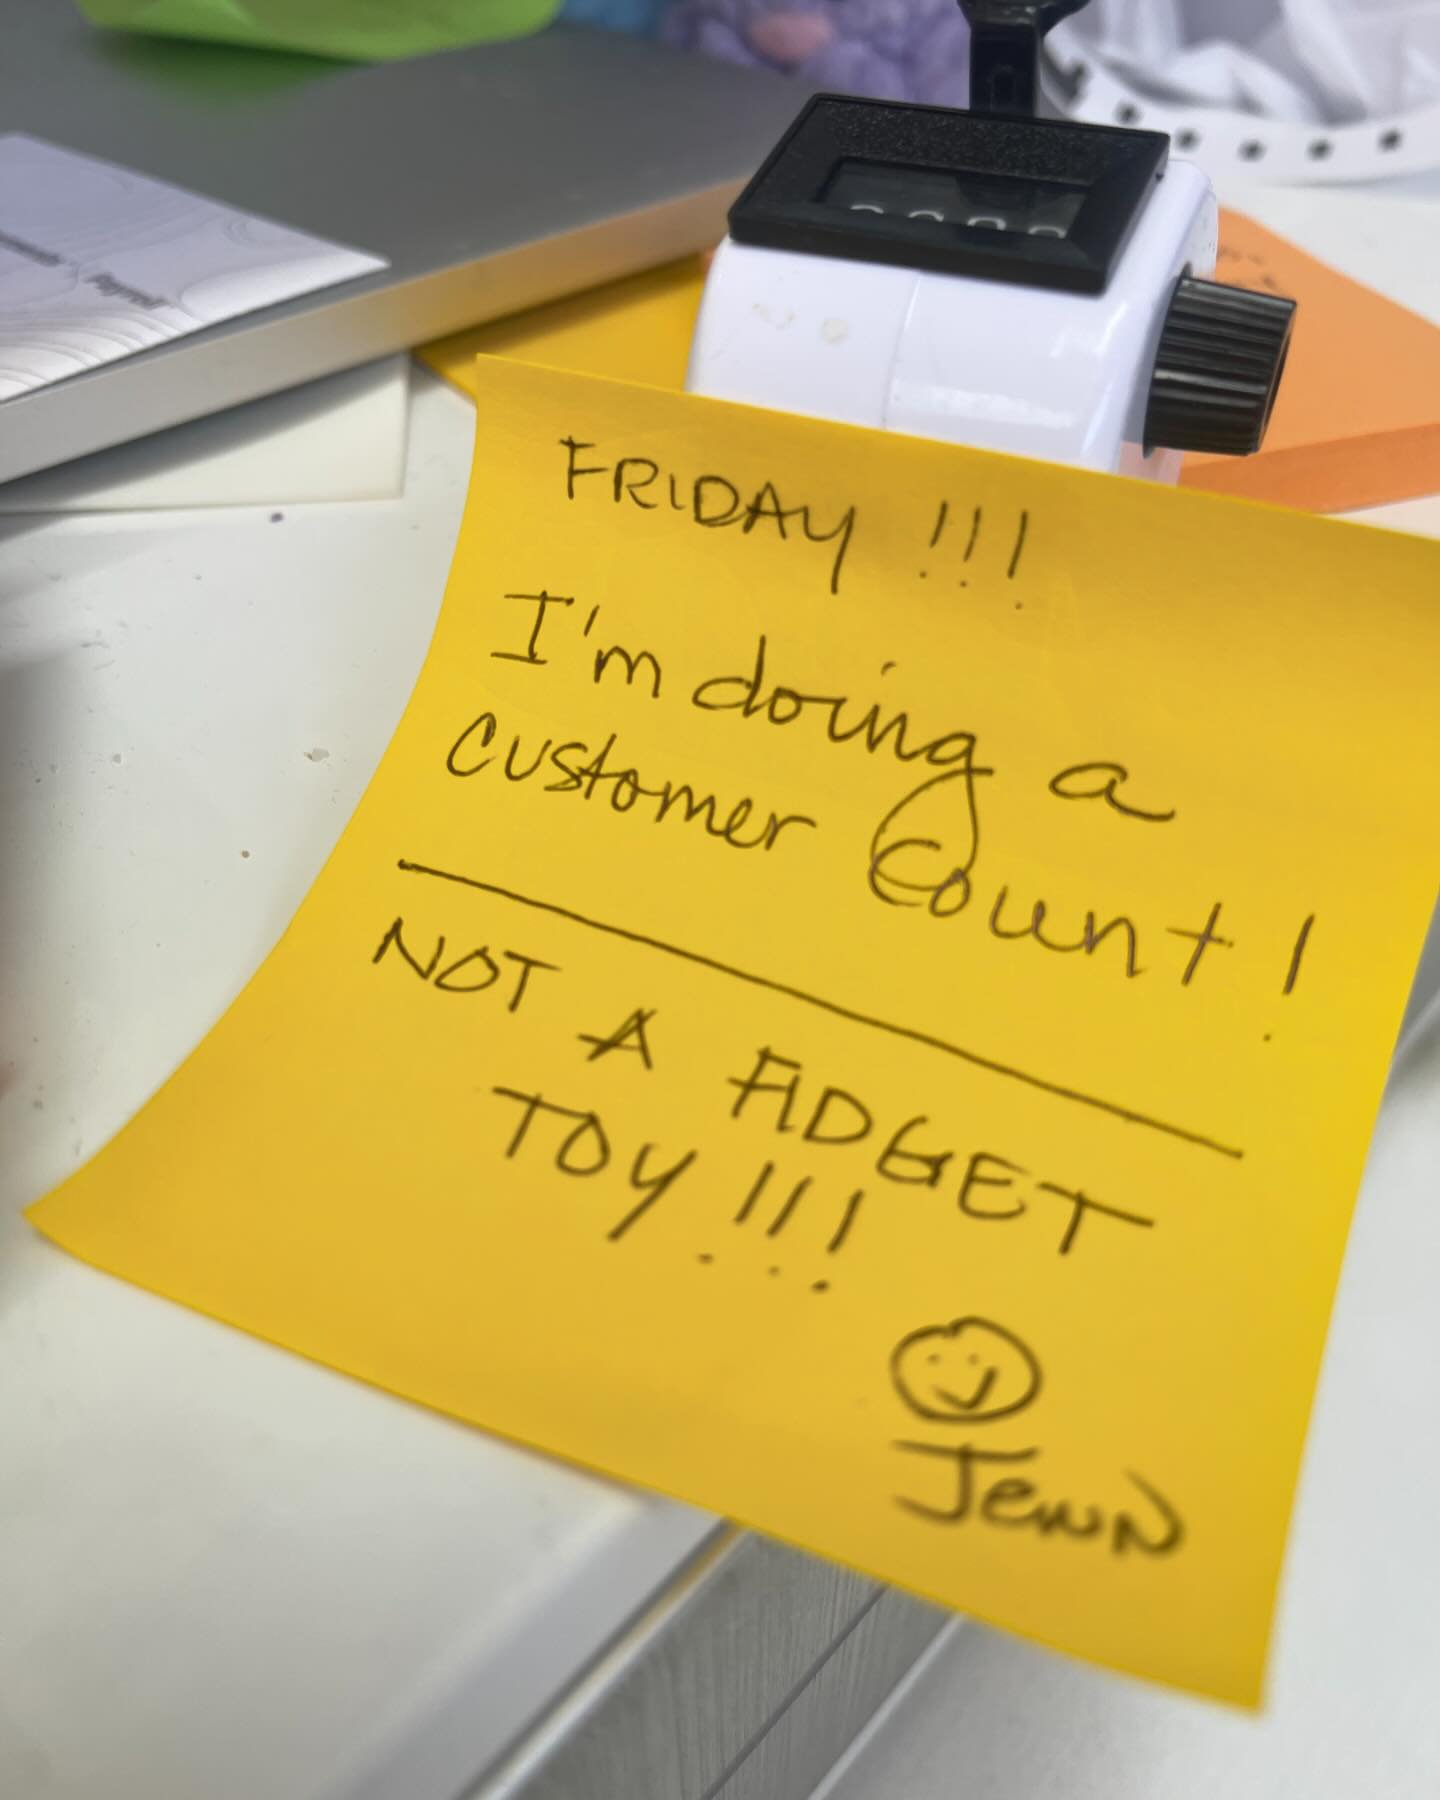 FRIDAY !!!
I'm doing a
customer count!
NOT A FIDGET
TOY !!!
JENN
Payroll